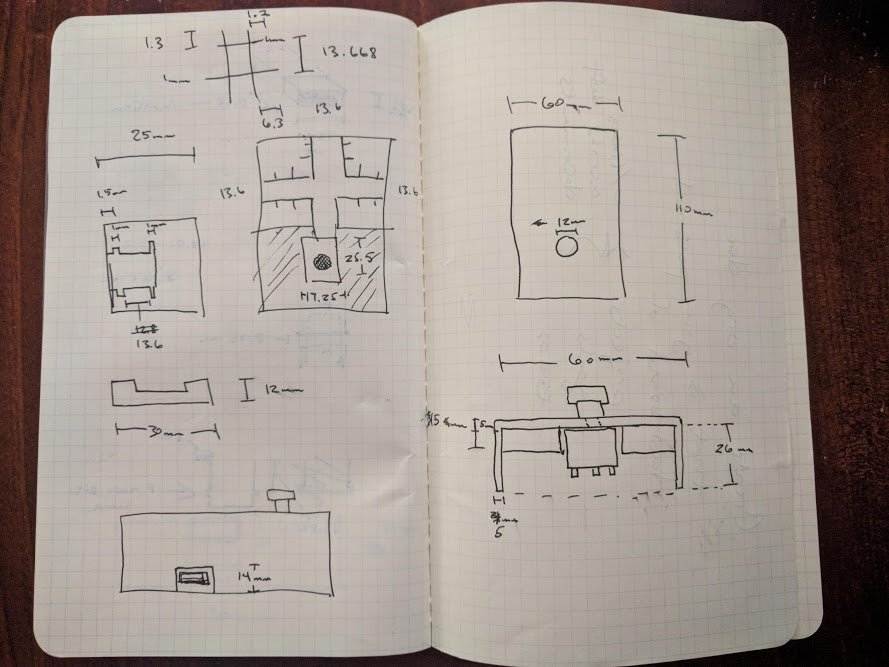 1.7
1.3
1mm
13.668
1mm
6.3
13.6
25mm
13.6
13.6
1.5mm
1mm
1mm
25.5
17.25
12.8
13.6
12mm
30mm
14mm
60mm
12mm
110mm
60mm
15
5mm
26mm
5